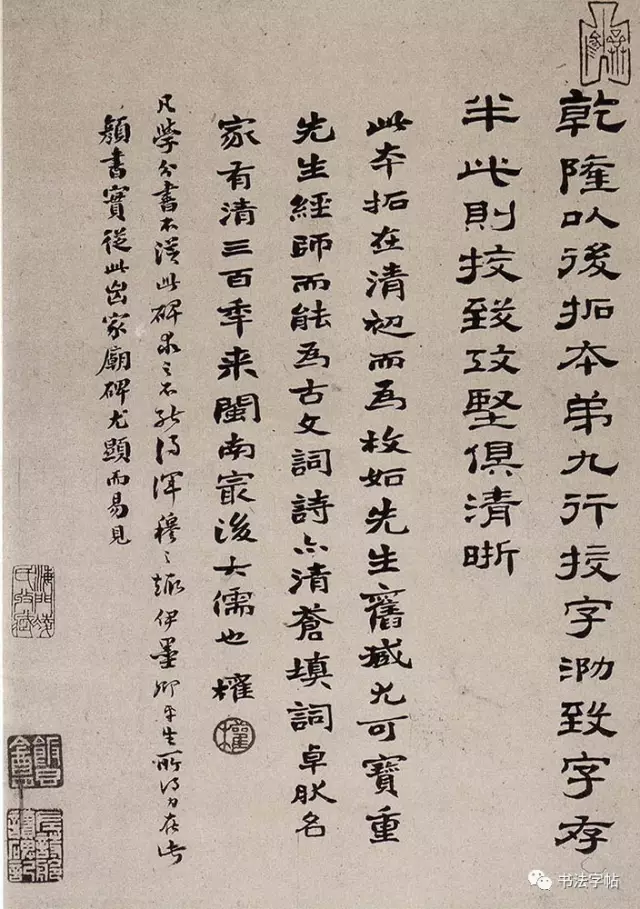 乾隆以後拓本弟九行挍字泐致字存
半此則挍致攻堅俱清晰
此本拓在清初而為枚如先生舊藏尤可寶重
先生經師而能為古文詞詩亦清蒼填詞卓肰名
家有清三百季来閩南冣後大儒也 櫂
櫂
凡學分書不從此碑求之不能得渾穆之趣伊墨卿平生所得力在此
顏書實從此出家廟碑尤顯而易見
书法字帖